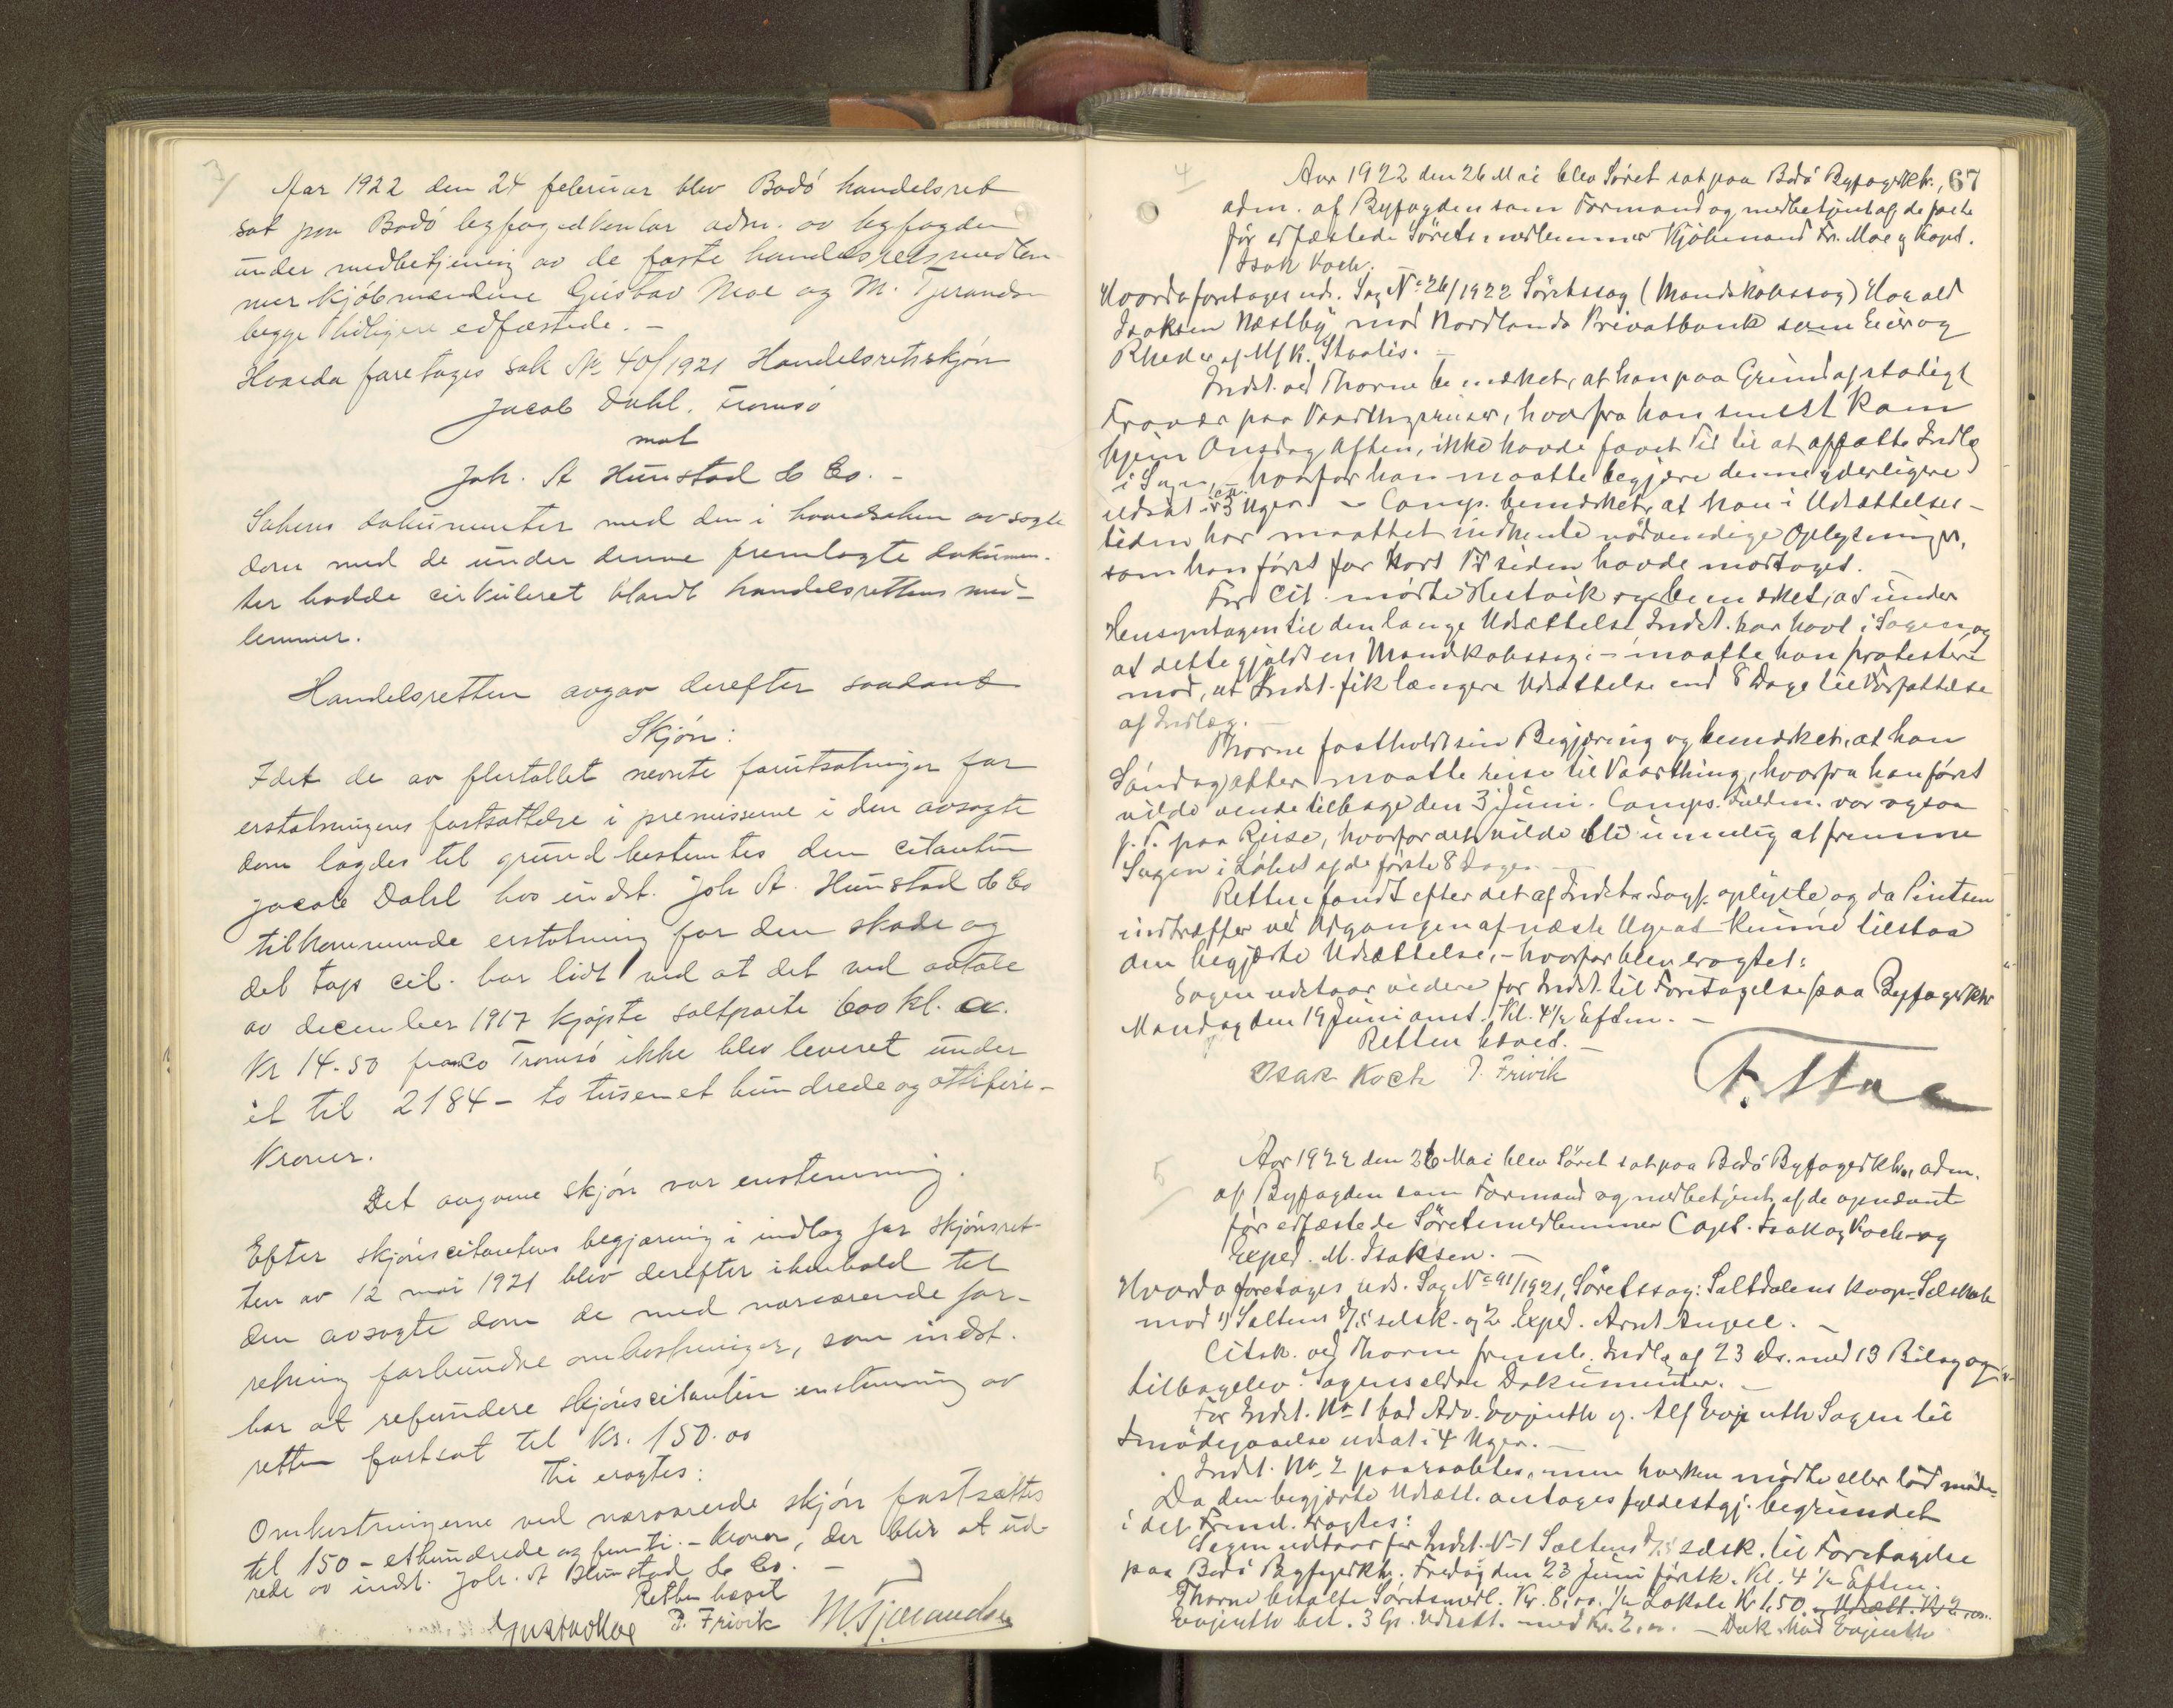 3/
Aar 1922 den 24 februar blev Bodö handelsret
sat paa Bodö byfogedkontor adm. av byfogden
under medbetjening av de faste handelsretsmedlem-
mer kjöbmændene Gustav Moe og M. Tjerandsen
begge tidligere edfæstede. -
Hvorda foretages sak No 40/1921 Handelsretsskjön
Jacob Dahl, Tromsö
mot
Joh. A Hunstad & Co. -
Sakens dokumenter med den i hovedsaken avsagte
dom med de under denne fremlagte dokumen-
ter hadde cirkuleret blandt handelsrettens med-
lemmer.
Handelsretten avgav derefter saadant
Skjön:
Idet de av flertallet nevnte forutsætninger for
erstatningens fastsættelse i premisserne i den avsagte
dom lægdes til grund bestemtes den citanten
Jacob Dahl hos indst. Joh A. Hunstad & Co
tilkommende erstatning for den skade og
det tap cit. har lidt ved at det ved avtale
av december 1917 kjøpte saltparti 600 hl. a.
Kr 14.50 franco Tromsö ikke blev leveret under
et til 2184 - to tusen et hundrede og ottifire -
Kroner.
Det avgivne skjön var enstemmig.
Efter skjönscitantens begjæring i indlæg for skjönsret-
ten av 12 mai 1921 blev derefter i henhold til
den avsagte dom de med nærværende for-
retning forbundne omkostninger, som indst.
har at refundere skjönscitanten enstemmig av
retten fastsat til Kr. 150.00
Thi eragtes:
Omkostningerne ved nærværende skjön fastsættes
til 150 - ethundrede og femti - kroner, der blir at ud-
rede av indst. Joh. A Hunstad & Co. -
Retten hævet
Gustav Moe P. Frivik M. Tjerandsen
67
4/
Aar 1922 den 26 Mai blev Söret sat paa Bodö Byfogedktr.,
adm. af Byfogden som Formand og medbetjent af de faste
för edfæstede Söretsmedlemmer Kjöbmand Fr. Moe og Kapt.
Isak Koch.
Hvorda foretages uds. Sag No 26/1922 Söretssag (Mandskabssag) Harald
Isaksen Næstby mod Nordlands Privatbank som Eier og
Rheder af M/K. Staalis. -
Indst. ved Thorne bemærket, at han paa Grund af stadigt
Fravær paa Vaarthingsreiser, hvorfra han senest kom
hjem Onsdag Aften, ikke havde faaet Tid til at affatte Indlæg
i Sagen, hvorfor han maatte begjære denne yderligere
udsat i ca. 3 Uger. - Comp. bemærket, at han i Udsættelses-
tiden har maattet indhente nödvendige Oplysninger,
som han först for kort Tid siden havde modtaget. -
For Cit. mødte Hestvik og bemærket, at under
Hensyntagen til den lange Udsættelse Indst. har havt i Sagen, og
at dette gjaldt en Mandskabssag; - maatte han protestere
mod, at Indst. fik længere Udsættelse end 8 Dage til Forfattelse
af Indlæg. -
Thorne fastholdt sin Begjæring og bemærket, at han
Söndag atter maatte reise til Vaarthing, hvorfra han först
vilde vende tilbage den 3 Juni. Comps. Fuldm. var ogsaa
p. T. paa Reise, hvorfor det vilde bli umulig at fremme
Sagen i Löbet af de förste 8 Dage. -
Retten fandt efter det af Indst.s Sagf. oplyste og da Pintsen
indtræffer ved Udgangen af næste Uge at kunne tilstaa
den begjærte Udsættelse, - hvorfor blev eragtet:
Sagen udstaar videre for Indst. til Foretagelse paa Byfogedktr
Mandag den 19 Juni anst. Kl. 4½ Efterm. -
Retten hævet. -
Isak Koch P. Frivik F. Moe
5/
Aar 1922 den 26 Mai blev Söret sat paa Bodö Byfogedktr., adm.
af Byfogden som Formand og medbetjent af de opnævnte
för edfæstede Söretsmedlemmer Capt. Isak Koch og
Exped. M. Isaksen. -
Hvorda foretages uds. Sag No 91/1921, Söretssag: Saltdalens Koop. Selskab
mod 1) Saltens D/S selsk. og 2 Exped. Arnt Angell. -
Citsk. ved Thorne freml. Indlæg af 23 ds. med 13 Bilag og
tilbagelev. Sagens ældre Dokumenter. -
For Indst. No 1 bad Adv. Evjenth v. Alf Evjenth Sagen til
Imödegaaelse udsat i 4 Uger. -
Indst. No 2 paaraabtes, men hverken mödte eller lod möde.
Da den begjærte Udsætt. antages fyldestgj. begrundet
i det Fremf. Eragtes:
Sagen udstaar for Indst. No 1 Saltens D/S selsk. til Foretagelse
paa Bodö Byfogedktr. Fredag den 23 Juni förstk. Kl. 4½ Efterm.
Thorne betalte Söretsmedl. Kr. 8,00. ½ Lokale Kr 1,50. Udsætt. Kr 2,00.
Evjenth bet. 3 Gg. Udsætt. med Kr. 2,00. - Dok. hos Evjenth